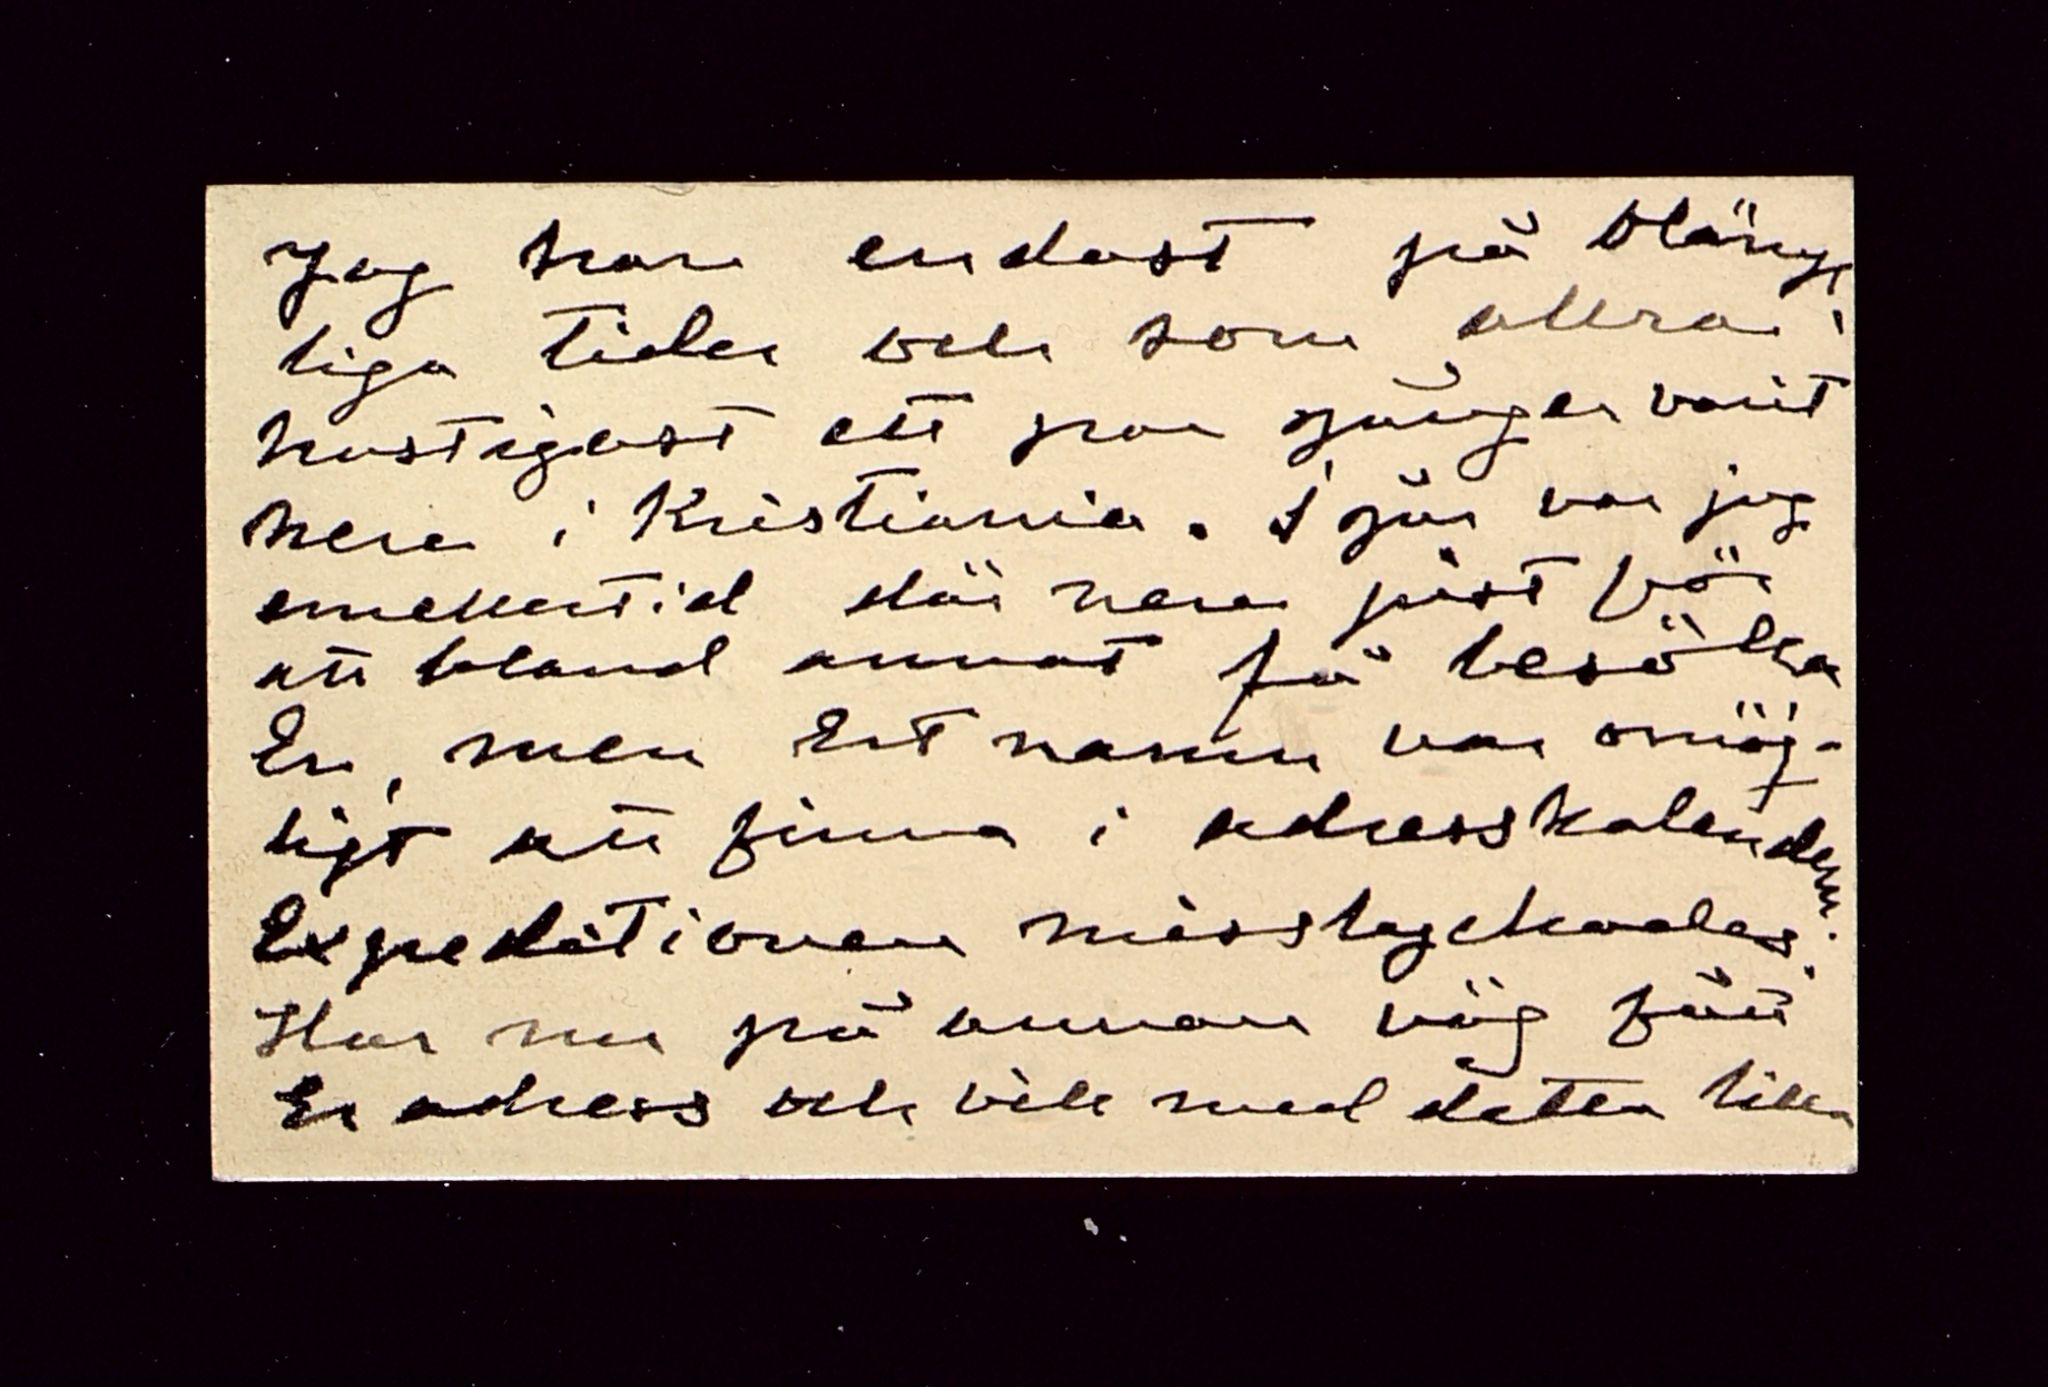 Jag har endast på otäng-
liga tider och som allra
hastigast ett par gånger varit
nere i Kristiania. I går var jag
emellertid där nere just för
att bland annat få besöka
Er, men Ert namn var omöj-
ligt att finna i adresskalendern.
Expeditionen misslyckades.
Har nu på annan väg fått
Er adress och vill med detta lilla